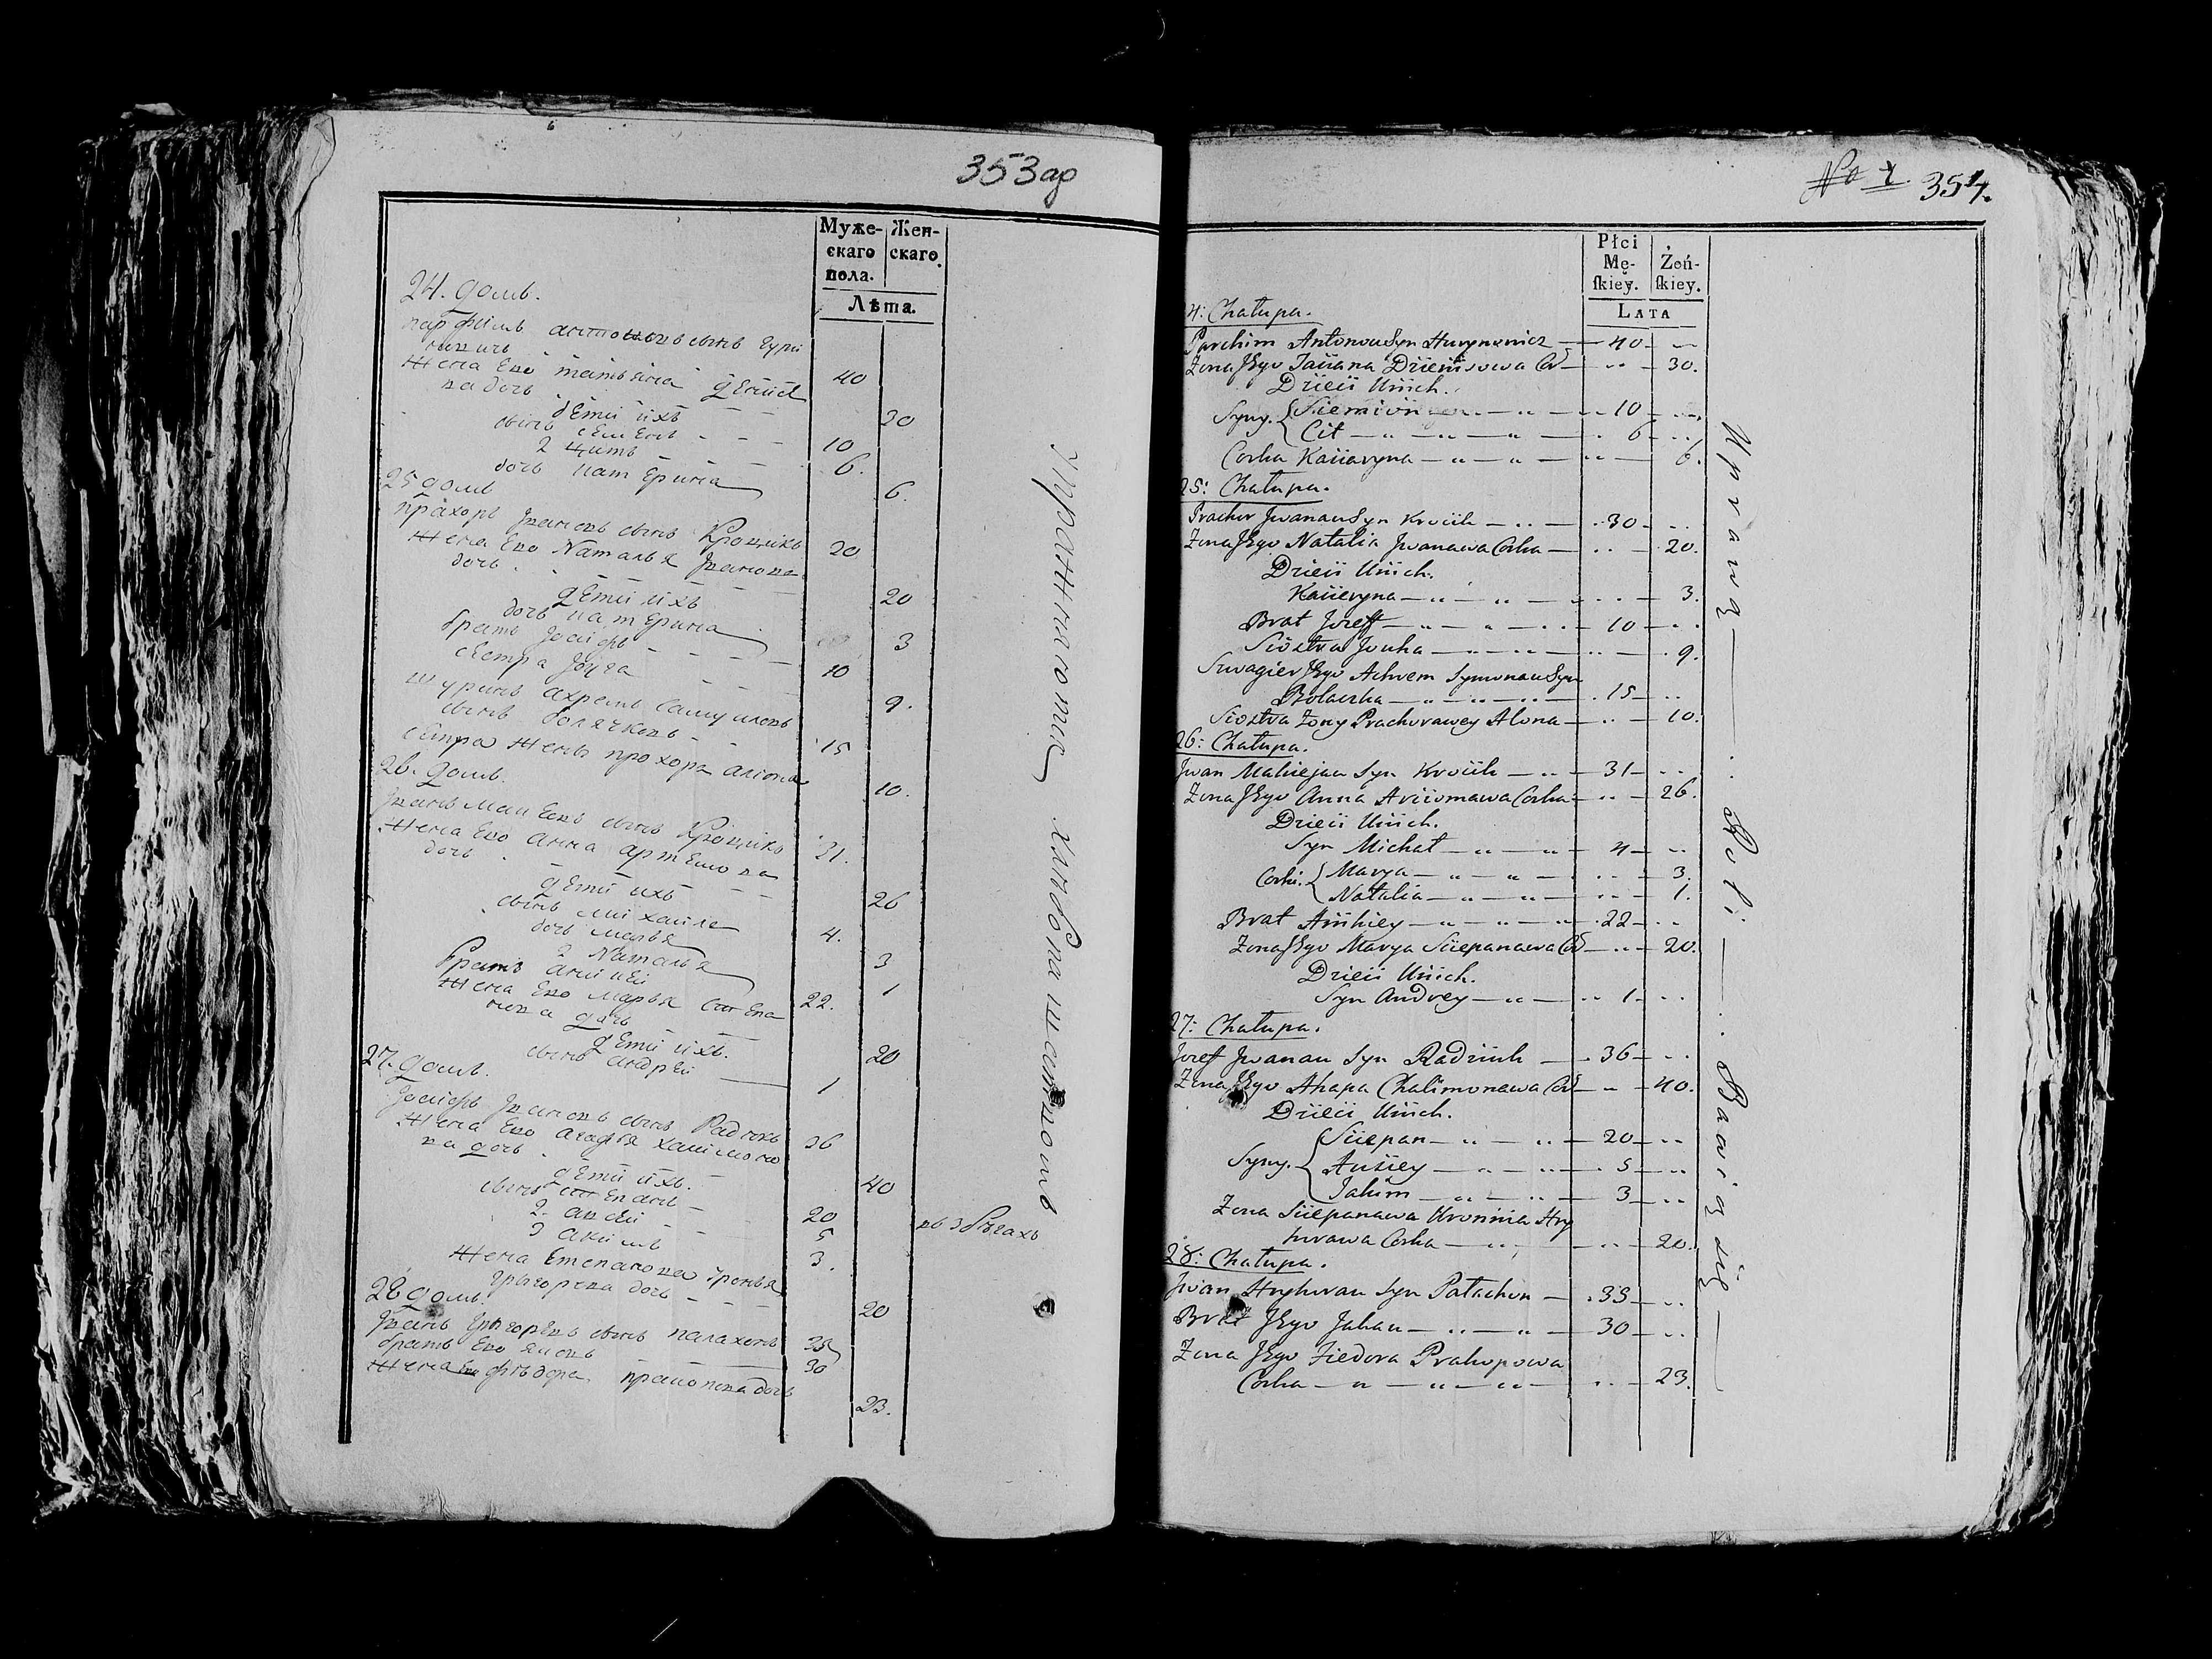 353 ар
Муже-
скаго
пола.
Жен-
скаго.
Лѣта.
24. домъ.
парфимъ антоновъ сынъ гури
новичь 40
жена Ево татьяна денисо
ва дочь 30
дети ихъ
сынъ семенъ 10
2 цитъ 6.
дочь катерина 6.
25 домъ
прахоръ Ивановъ сынъ Кроцикъ 20
жена Ево Наталья Иванова
дочь 20
дети ихъ
дочь катерина 3
братъ Іосифъ 10
сестра 9.
шуринъ ахремъ
сынъ болячковъ 15
сестра жены прохора алiона 10.
26. домъ.
Иванъ Макеевъ сынъ Кроцикъ 31.
жена Ево анна артемова
дочь 26
дети ихъ
сынъ михаила 4.
дочь марья 3
2 Наталья 1
братъ аникей 22.
жена Ево марья степа
нова дочь 20
дети ихъ.
сынъ андрей 1
27. домъ.
Іосифъ Ивановъ сынъ Радюкъ 36
жена Ево агафья халимоно
ва дочь 40
дети ихъ.
сынъ степанъ 20 въ збегахъ
2. авсей 5
3 акимъ 3.
жена степанова
григорева дочь 20
28 домъ.
Иванъ григоревъ сынъ палахонъ 33
братъ Ево яковъ 30
жена Ево фѣдора прокопова дочь 23.
Упражнението хлебопашатномъ
No 1. 354.
Płci
Mę-
skiey.
Żeń-
skiey.
LATA
4: Chałupa.
Parchim Antonou Syn Hurynowicz — 40 — ..
Zona Jego Taciana Dzienisowa Cor — .. — 30.
Dzieci Unich.
Syny. Siemion — 10 — ..
Cit — 6 — ..
Corka Kaciaryna — .. — 6.
25: Chałupa.
Prachor Jwanau Syn Krocik — 30 — ..
Zona Jego Natalia Jwanawa Corka — .. — 20.
Dzieci Unich.
Kacieryna — .. — 3.
Brat Jozeff — 10 — ..
Siostra Jouha — .. — 9.
Szwagier Jego Achrem Symonau Syn
Bolaczka — 15 — ..
Siostra Zony Prachorawey Alona — .. — 10.
26: Chałupa.
Jwan Makiejau Syn Krocik — 31 — ..
Zona Jego Anna Arciomawa Corka — .. — 26.
Dzieci Unich.
Syn Michał — 4 — ..
Corki. Marya — .. — 3.
Natalia — .. — 1.
Brat Anikiey — 22 — ..
Zona Jego Marya Sciepanawa Cor — .. — 20.
Dzieci Unich.
Syn Andrey — 1 — ..
27: Chałupa.
Jozef Jwanau Syn Radziuk — 36 — ..
Zona Jego Ahapa Chalimonawa Cor — .. — 40.
Dzieci Unich.
Sciepan — 20 — ..
Syny. Ausiey — 5 — ..
Jakim — 3 — ..
Zona Sciepanawa Uronnia Hry
horawa Corka — .. — 20.
28: Chałupa.
Jwan Hryhorau Syn Patachon — 33 — ..
Brat Jego Jakau — 30 — ..
Zona Jego Fiedora Prakopowa
Corka — .. — 23.
Uprawą — Roli — Bawią się —